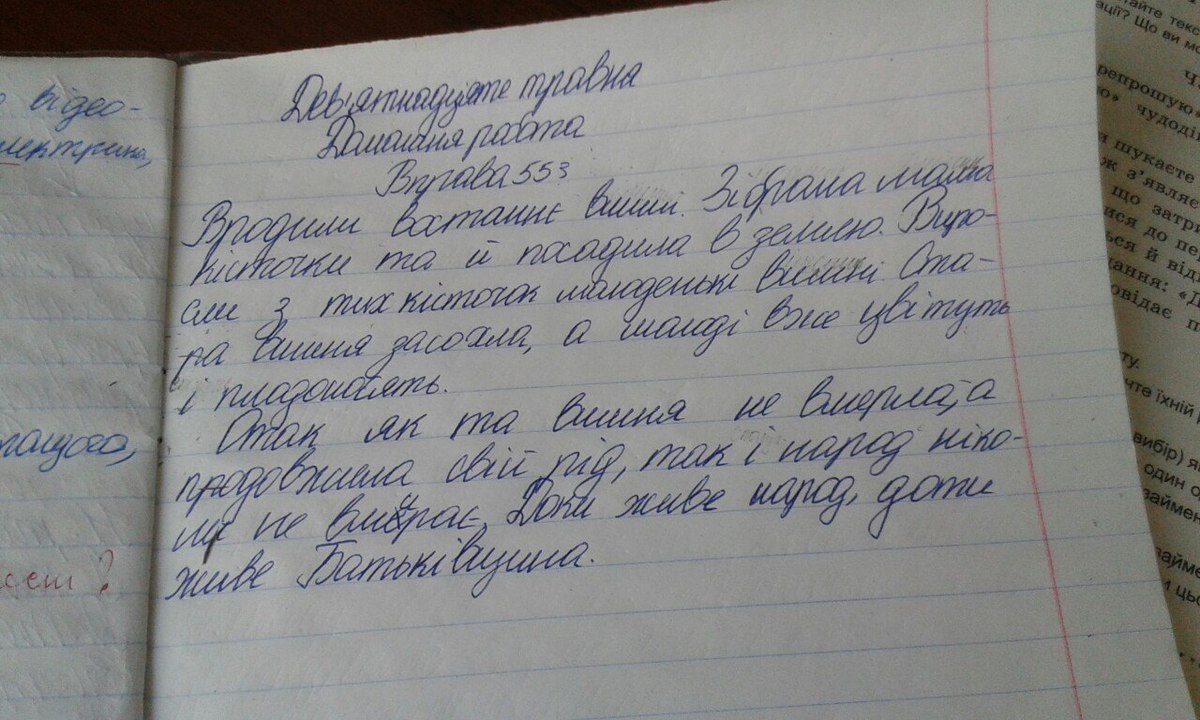 відео-
лектрика,
Дев'ятнадцяте травня
Домашня работа
Вправа 553
Вродили востаннє вишні. Зібрала мама
кісточки та й посадила в землю. Виро-
сли з тих кісточок молоденькі вишні. Ста-
ра вишня засохла, а молоді вже цвітуть
і плодоносять.
Отак як та вишня не вмерла, а
продовжила свій рід, так і народ ніко-
ли не вмирає. Доки живе народ, доти
живе Батьківщина.
?
тайте текс
ації? Що ви мо
репрошую»
чудоді
шукаєте
з'являє
що затри
ися до пер
ься й від
ання: «Д
овідає п
ту.
чте їхній
вибір) я
один о
займен
займе
цьо